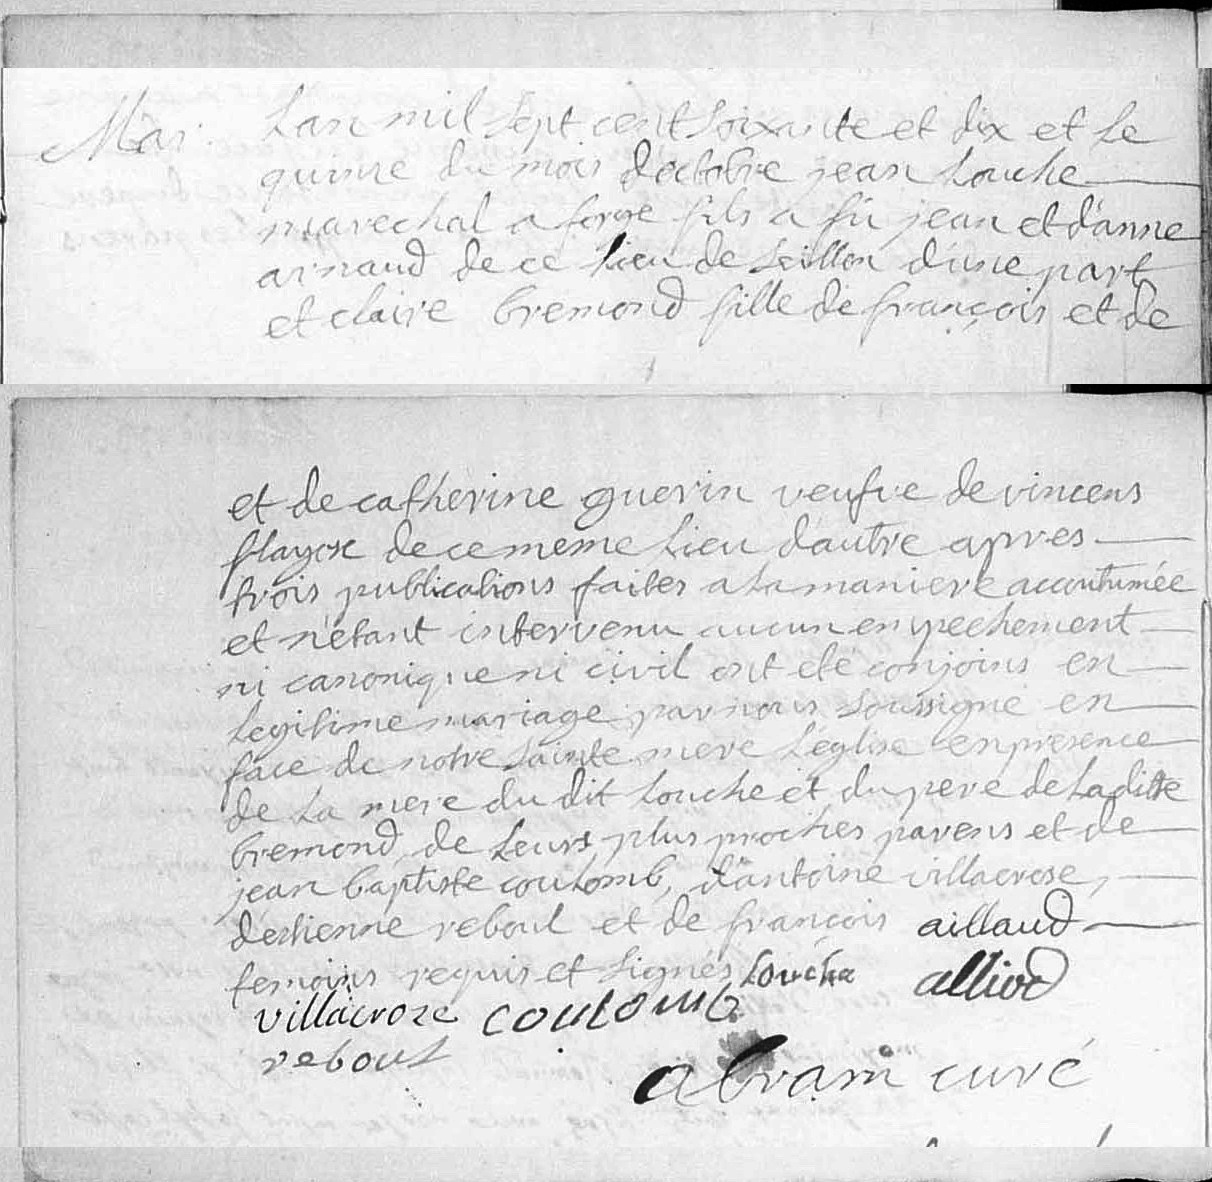 Mar. Lan mil sept cent soixante et dix et le
quinze du mois d'octobre jean Louche
marechal a forge fils a fû jean et d'anne
arnaud de ce lieu de seillon d'une part
et claire bremond fille de françois et de
et de catherine guerin veufve de vincens
flayose de ce meme lieu d'autre apres
trois publications faites a la maniere accoutumée
et n'étant intervenu aucun enpechement
ni canonique ni civil ont eté conjoins en
legitime mariage par nous soussigné en
face de notre sainte mere l'eglise en presence
de la mere du dit Louche et du pere de la ditte
bremond, de leurs plus proches parens et de
jean baptiste coulomb, d'antoine villacrose,
d'estienne reboul et de françois aillaud
temoins requis et signés Louche alliod
villacroze coulomb
reboul
abram curé